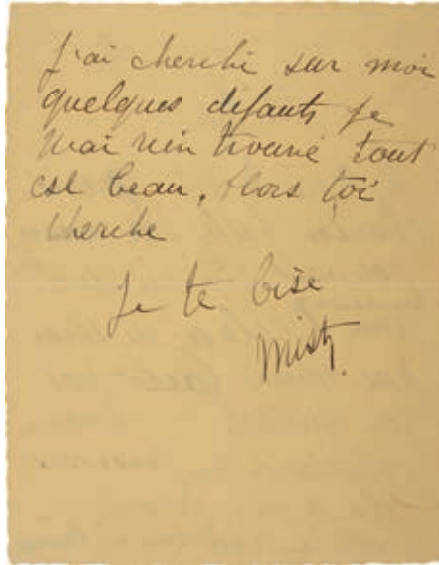 J'ai cherché sur moi
quelques défauts je
n'ai rien trouvé tout
est beau, Alors toi
cherche
Je te bise
Misty.